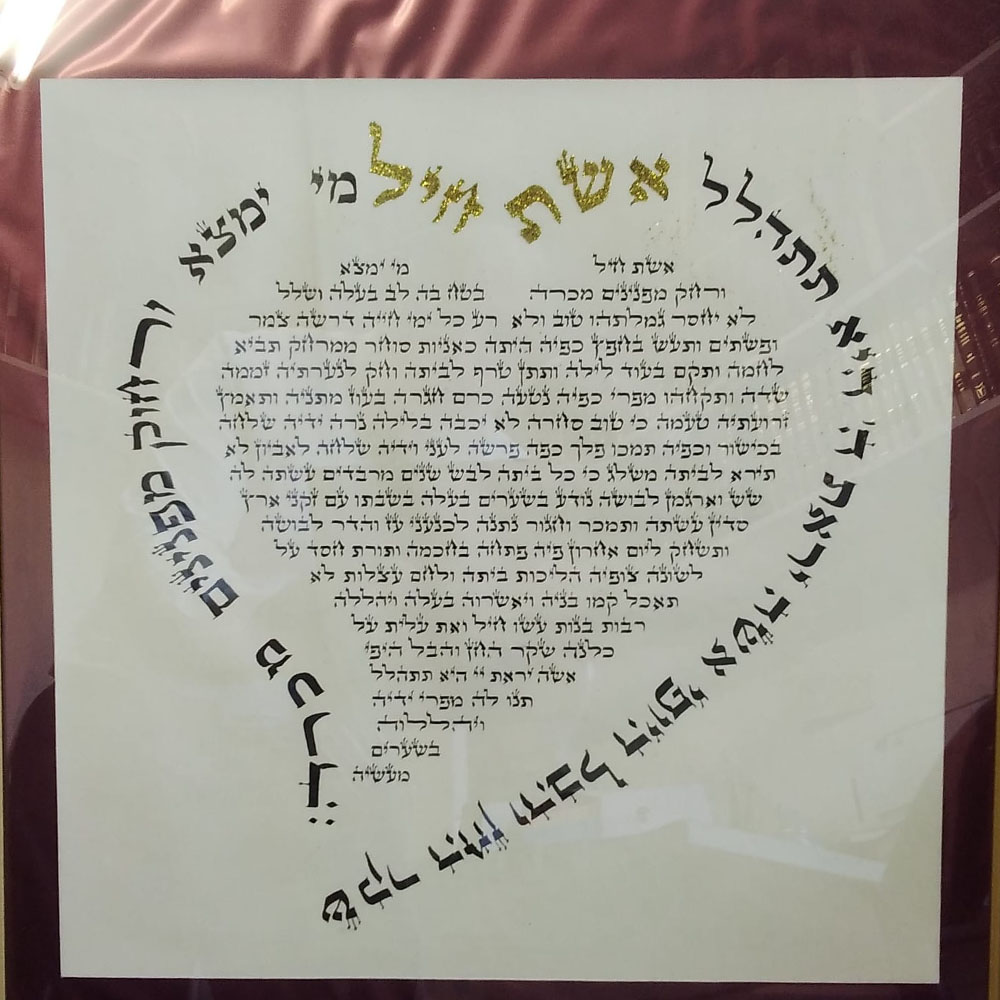 אשת חיל מי ימצא ורחוק מפנינים מכרה:
שקר החן והבל היופי אשה יראת ה היא תתהלל
אשת חיל מי ימצא
ורחק מפנינים מכרה בטח בה לב בעלה ושלל
לא יחסר גמלתהו טוב ולא רע כל ימי חייה דרשה צמר
ופשתים ותעש בחפץ כפיה היתה כאניות סוחר ממרחק תביא
לחמה ותקם בעוד לילה ותתן טרף לביתה וחק לנערתיה זממה
שדה ותקחהו מפרי כפיה נטעה כרם חגרה בעוז מתניה ותאמץ
זרועתיה טעמה כי טוב סחרה לא יכבה בלילה נרה ידיה שלחה
בכישור וכפיה תמכו פלך כפה פרשה לעני וידיה שלחה לאביון לא
תירא לביתה משלג כי כל ביתה לבש שנים מרבדים עשתה לה
שש וארגמן לבושה נודע בשערים בעלה בשבתו עם זקני ארץ
סדין עשתה ותמכר וחגור נתנה לכנעני עז והדר לבושה
ותשחק ליום אחרון פיה פתחה בחכמה ותורת חסד על
לשונה צופיה הליכות ביתה ולחם עצלות לא
תאכל קמו בניה ויאשרוה בעלה ויהללה
רבות בנות עשו חיל ואת עלית על
כלנה שקר החן והבל היפי
אשה יראת יי היא תתהלל
תנו לה מפרי ידיה
ויהללוה
בשערים
מעשיה